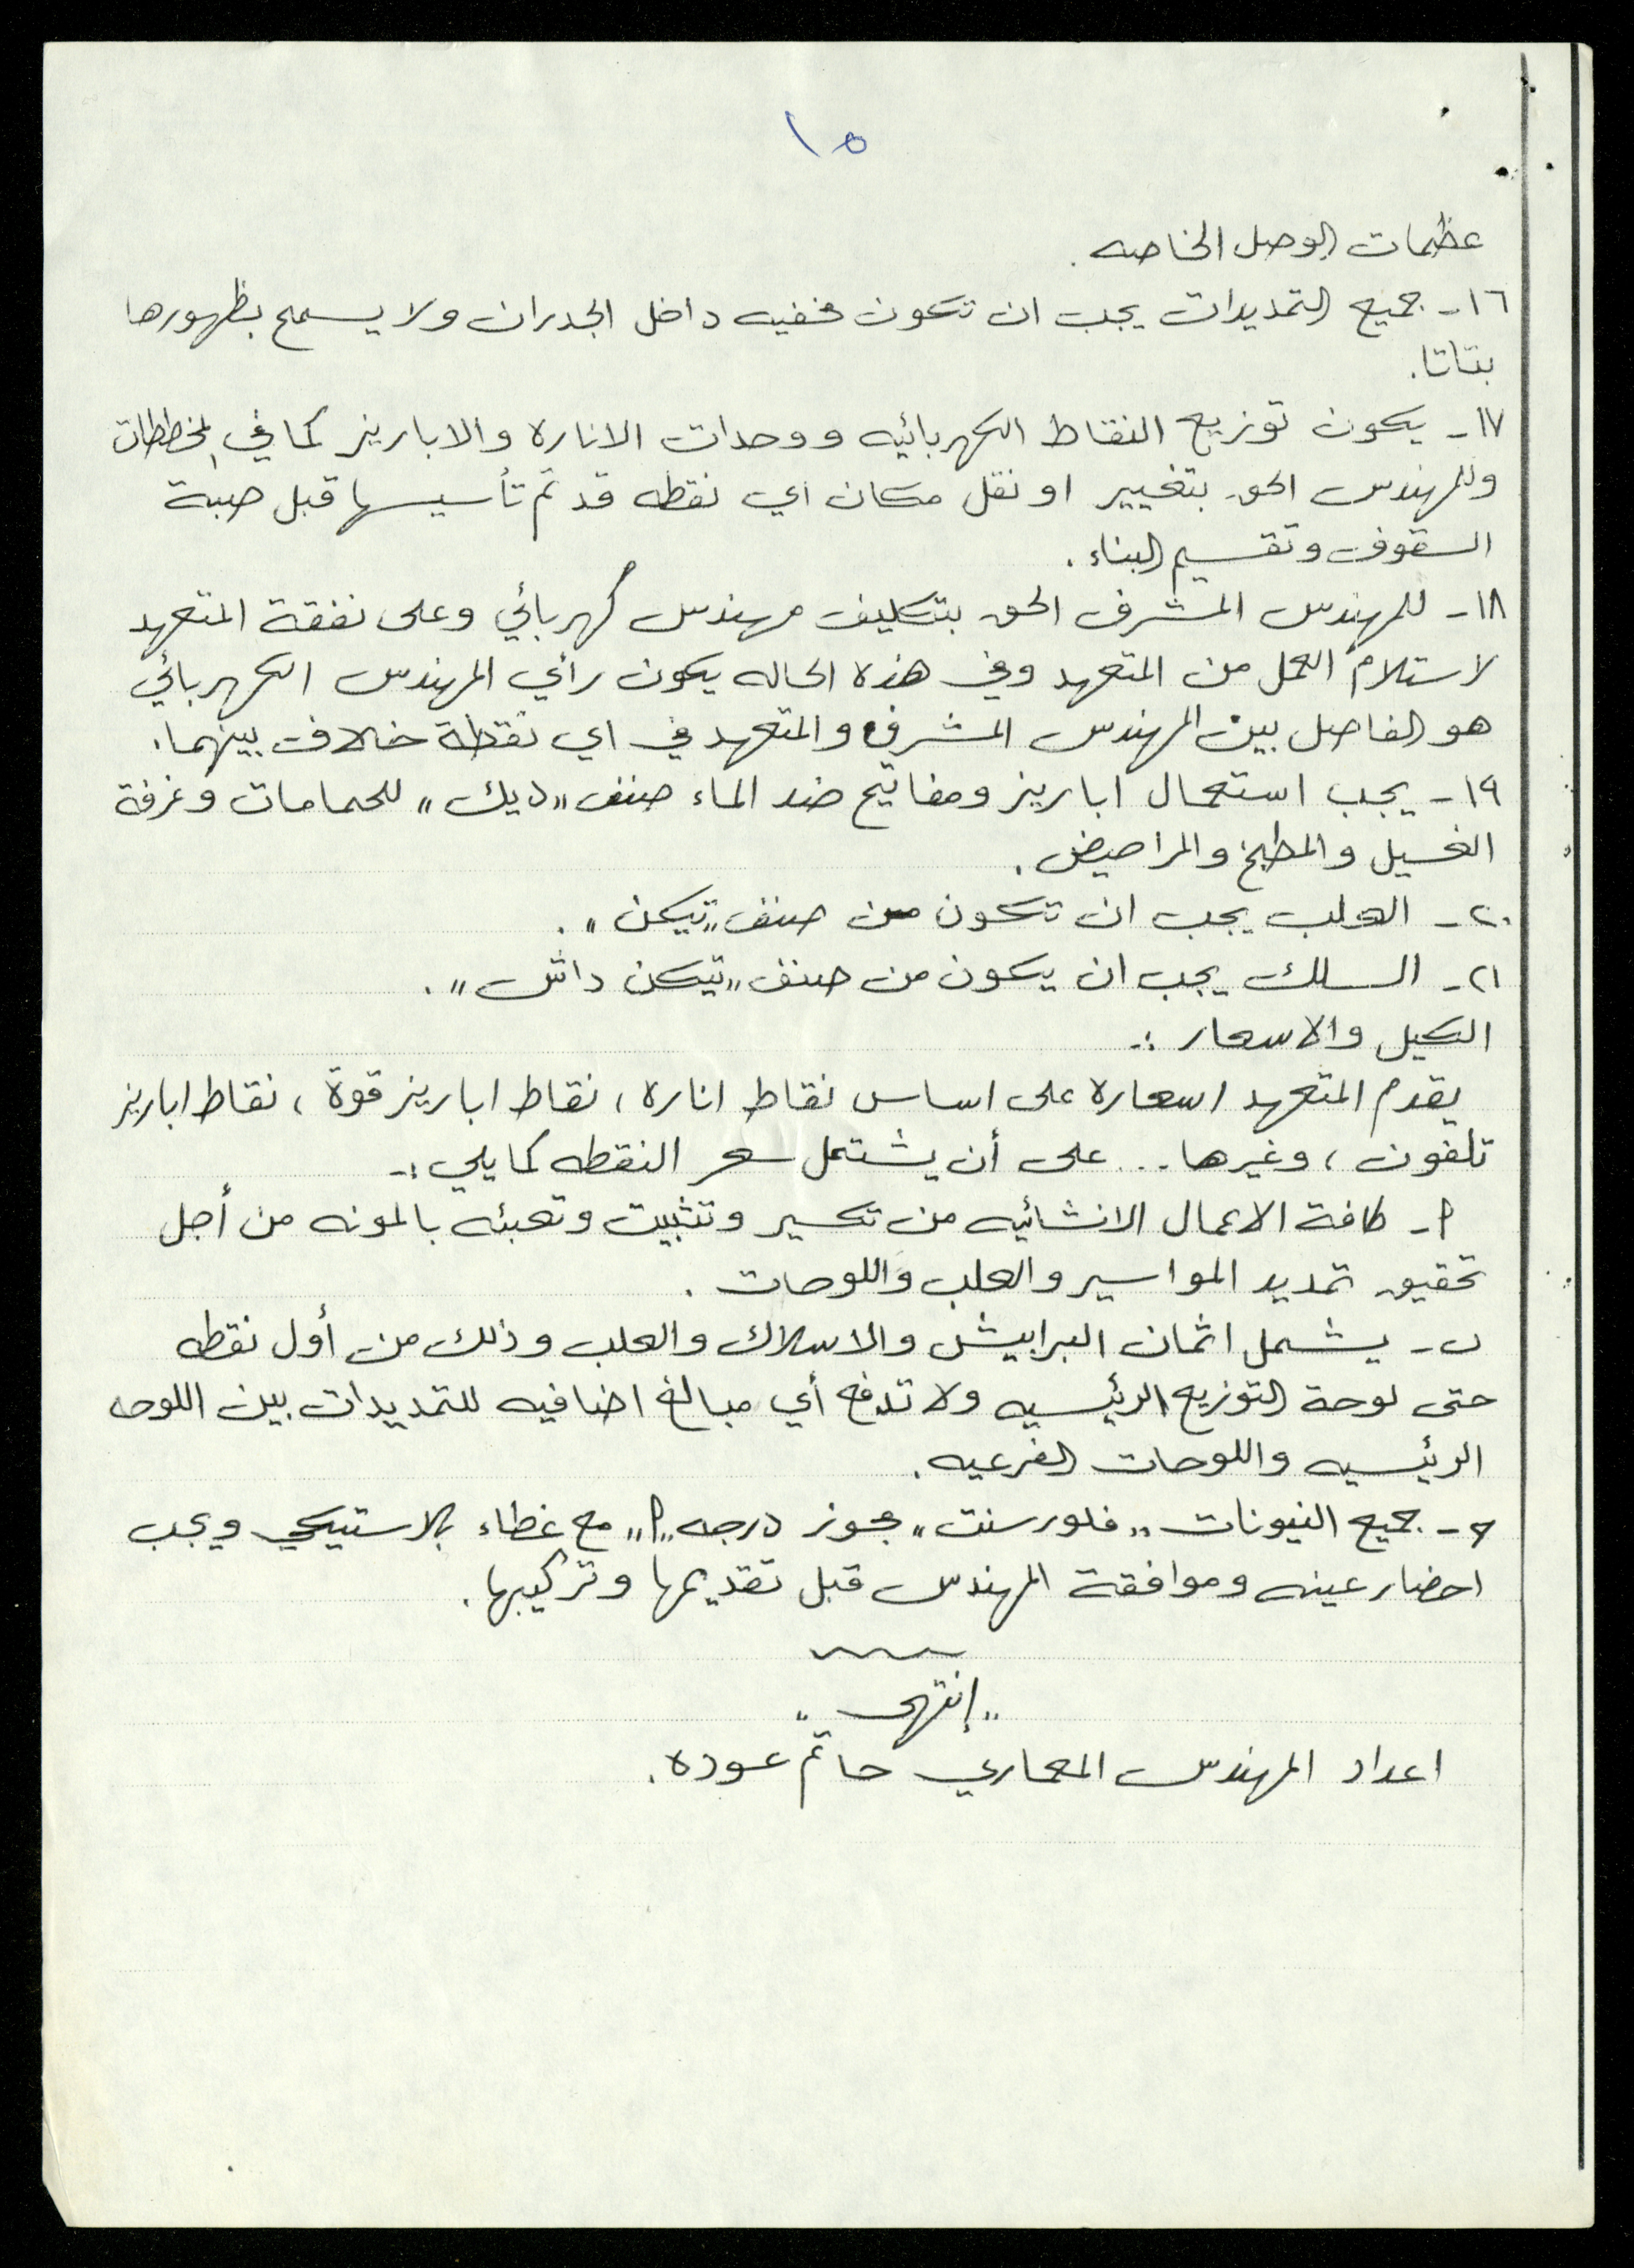 ١٥
عظمات الوصل الخاصه.
١٦- جميع التمديدات يجب ان تكون مخفيه داخل الجدران ولا يسمح بظهورها
بتاتا.
١٧- يكون توزيع النقاط الكهربائيه ووحدات الاناره والاباريز كما في المخططات
وللمهندس الحق بتغيير او نقل مكان اي نقطه قد تم تأسيسها قبل صبة
السقوف وتقسيم البناء.
١٨- للمهندس المشرف الحق بتكليف مهندس كهربائي وعلى نفقة المتعهد
لاستلام العمل من المتعهد وفي هذه الحاله يكون رأي المهندس الكهربائي
هو الفاصل بين المهندس المشرف والمتعهد في اي نقطة خلاف بينهما.
١٩- يجب استعمال اباريز ومفاتيح ضد الماء صنف "ديك" للحمامات وغرفة
الغسيل والمطبخ والمراحيض.
٢٠- العلب يجب ان تكون من صنف "تيكن".
٢١- السلك يجب ان يكون من صنف "تيكن داش".
الكيل والاسعار :-
يقدم المتعهد اسعاره على اساس نقاط اناره، نقاط اباريز قوة، نقاط اباريز
تلفون، وغيرها... على أن يشتمل سعر النقطه كما يلي :-
أ- كافة الاعمال الانشائيه من تكسير وتثبيت وتعبئه بالمونه من أجل
تحقيق تمديد المواسير والعلب واللوحات.
ب- يشمل اثمان البرابيش والاسلاك والعلب وذلك من أول نقطه
حتى لوحة التوزيع الرئيسيه ولا تدفع أي مبالغ اضافيه للتمديدات بين اللوحه
الرئيسيه واللوحات الفرعيه.
ج- جميع النيونات "فلورسنت" جوز درجه "أ" مع غطاء بلاستيكي ويجب
احضار عينه وموافقة المهندس قبل تقديمها وتركيبها.
"إنتهى"
اعداد المهندس المعماري حاتم عوده.